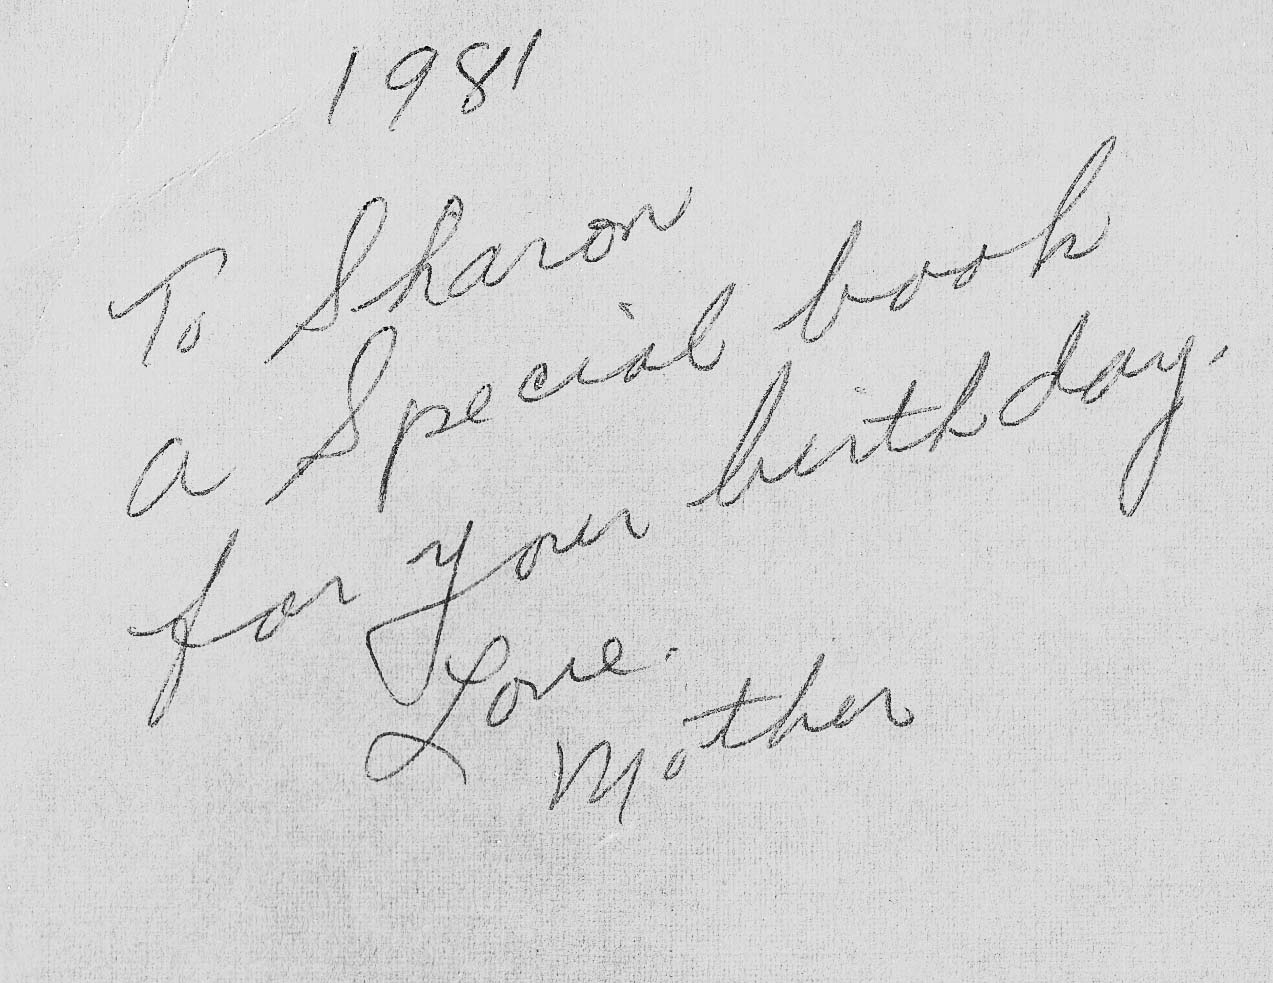 1981
To Sharon
a Special book
for your birthday.
Love.
Mother